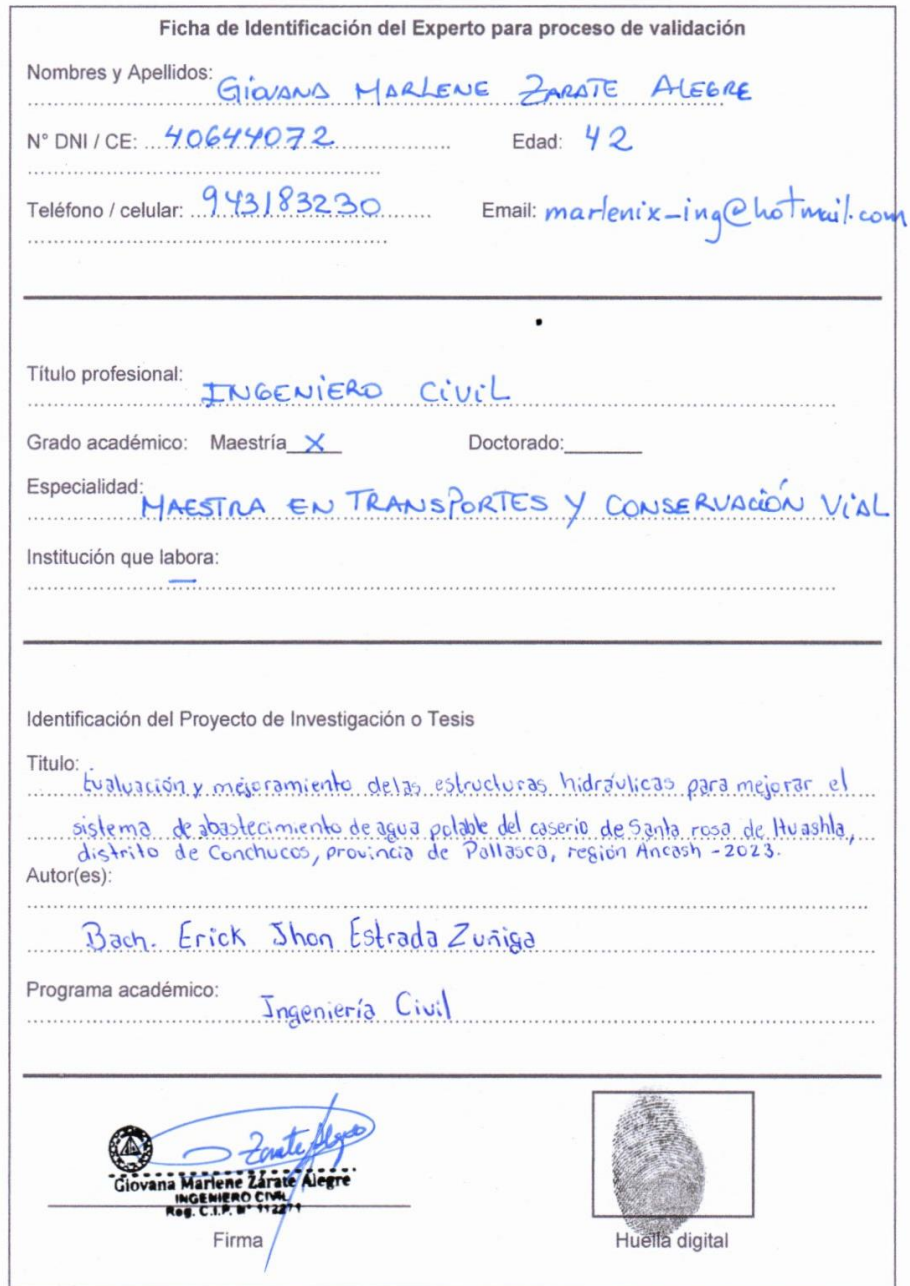 Ficha de Identificación del Experto para proceso de validación
Nombres y Apellidos: GIOVANA MARLENE ZARATE ALEGRE
N° DNI / CE: 40644072 Edad: 42
Teléfono / celular: 943183230 Email: marlenix-ing@hotmail.com
Título profesional: INGENIERO CIVIL
Grado académico: Maestría X Doctorado:
Especialidad: MAESTRA EN TRANSPORTES Y CONSERVACIÓN VIAL
Institución que labora: —
Identificación del Proyecto de Investigación o Tesis
Titulo: Evaluación y mejoramiento delas estructuras hidráulicas para mejorar el
sistema de abastecimiento de agua potable del caserio de Santa rosa de Huashla,
distrito de Conchucos, provincia de Pallasca, región Ancash -2023.
Autor(es):
Bach. Erick Jhon Estrada Zuñiga
Programa académico: Ingeniería Civil
Zarate Alegre
Giovana Marlene Zárate Alegre
INGENIERO CIVIL
Reg. C.I.P. N° 112271
Firma Huella digital